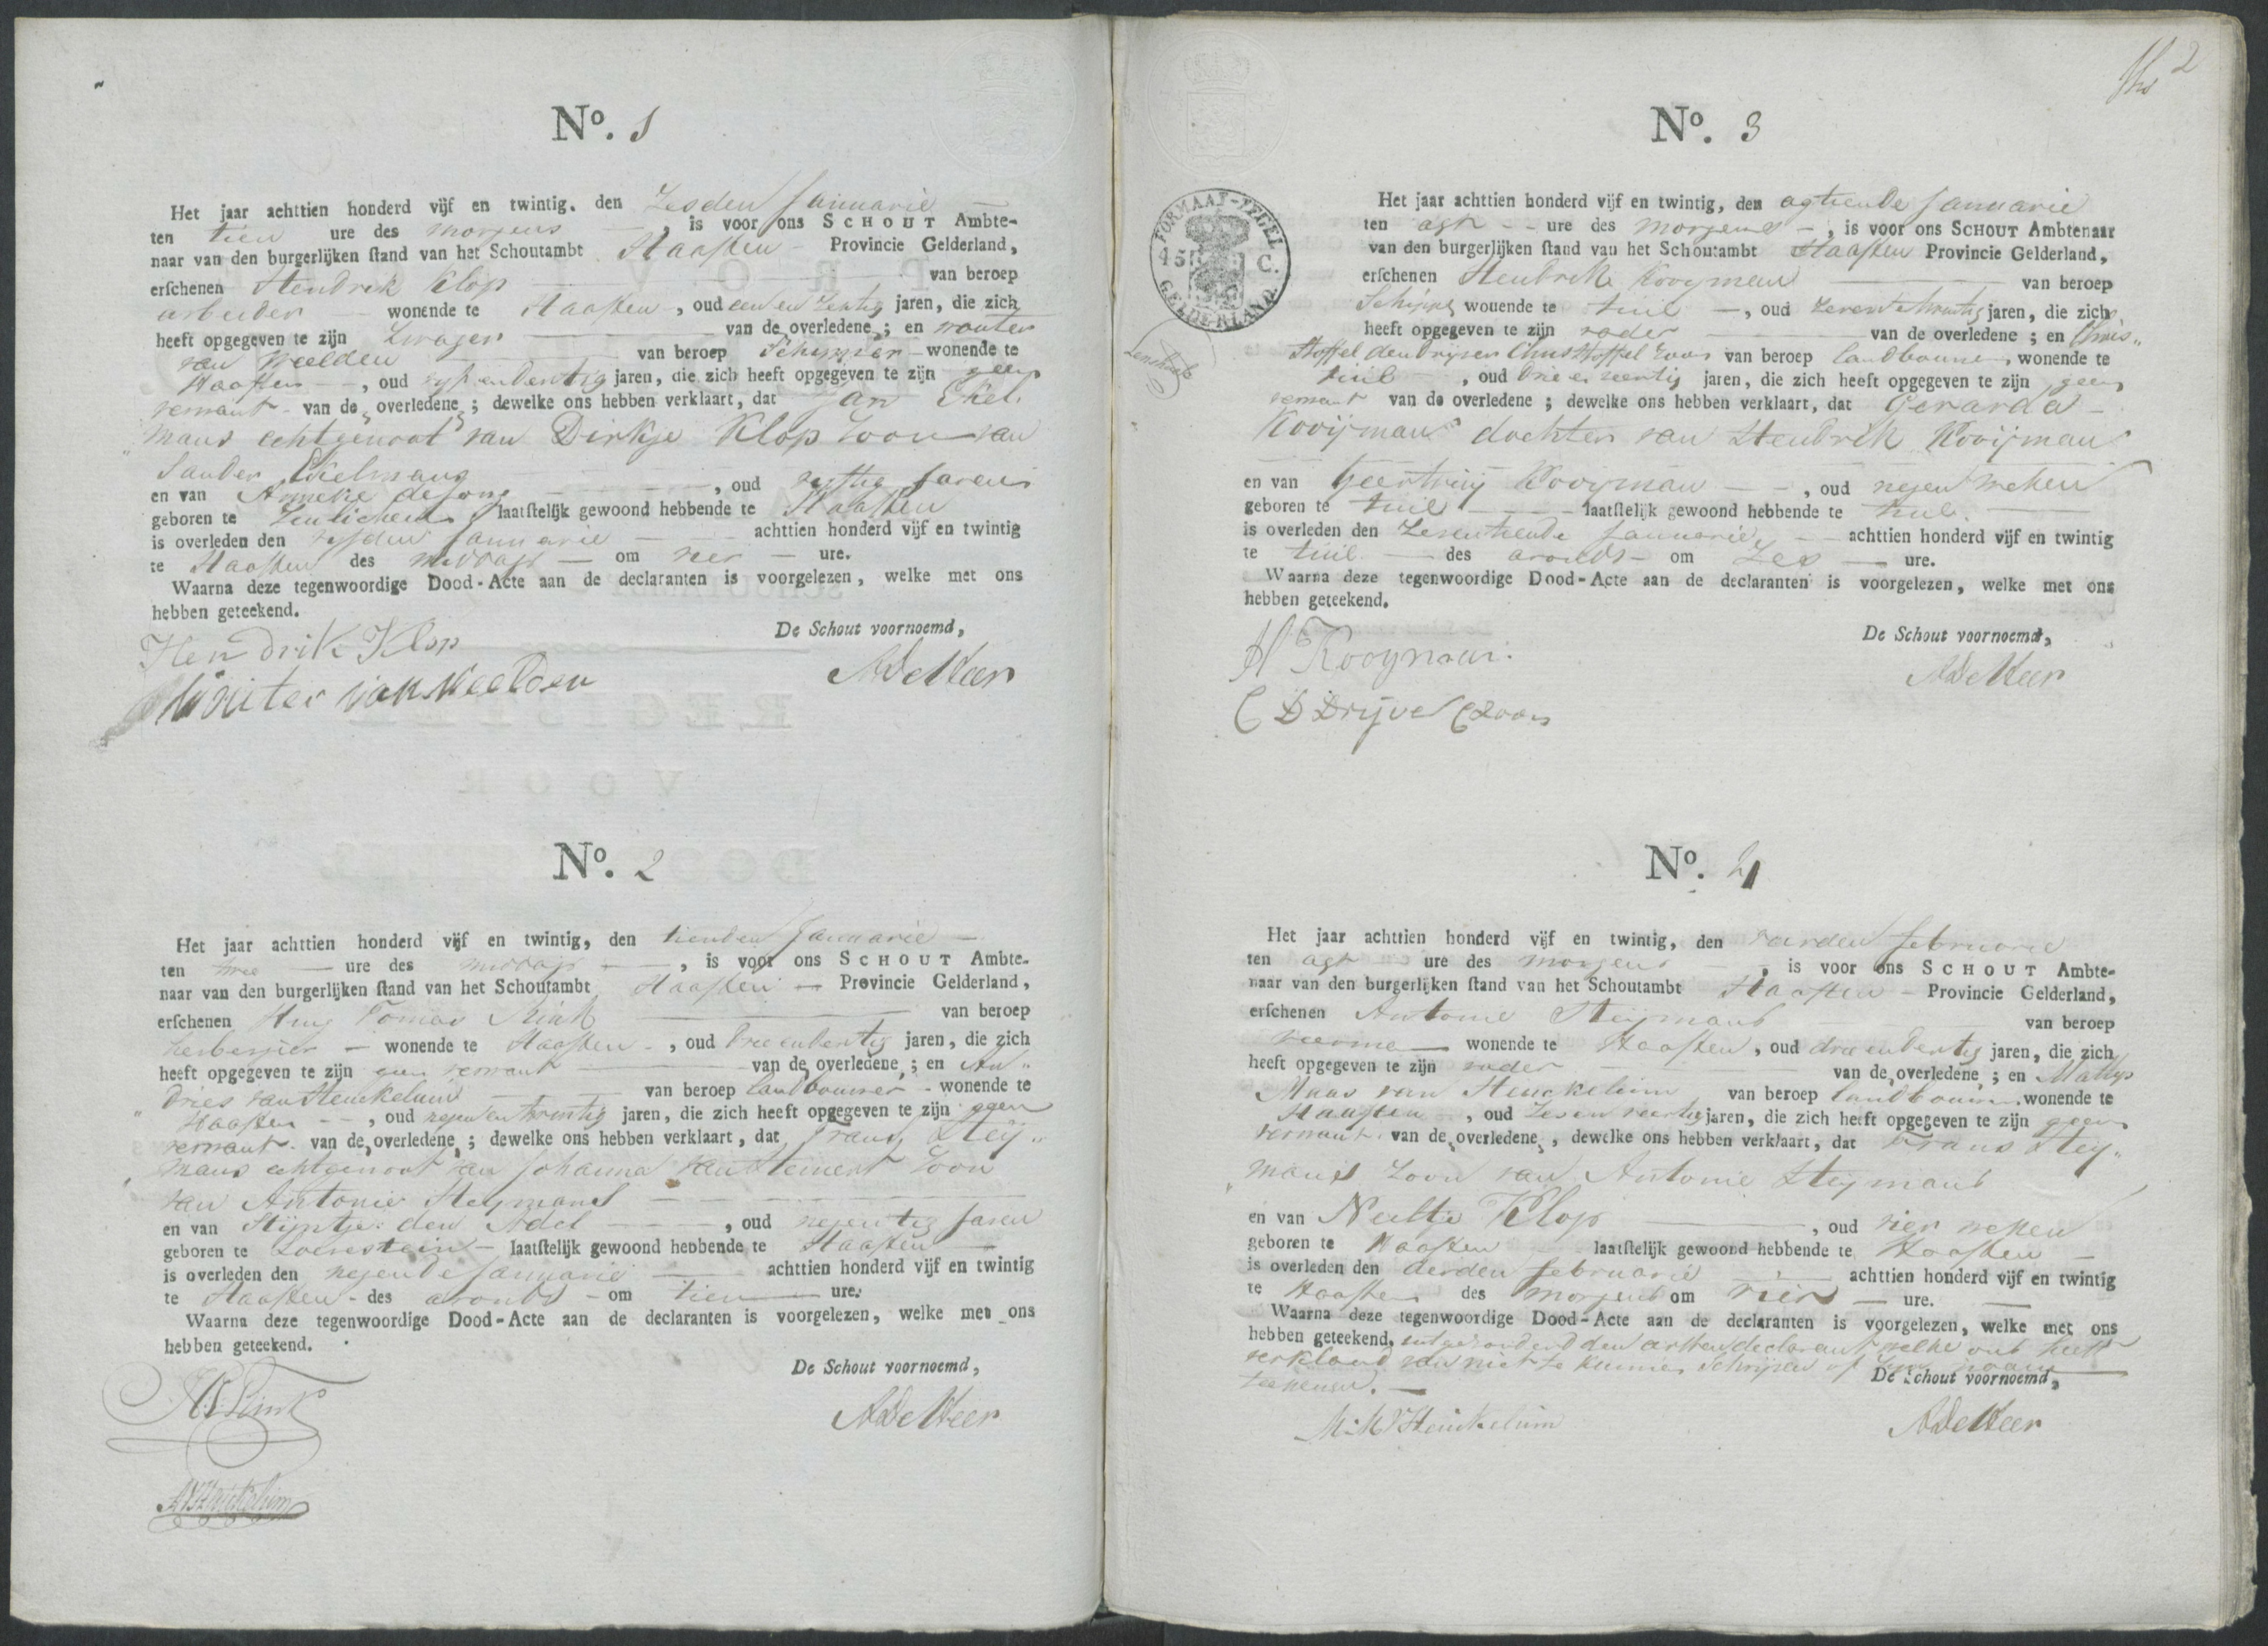 No. 1
Het jaar achttien honderd vijf en twintig. den Zesden Januarie
ten tien ure des morgens, is voor ons SCHOUT Ambte-
naar van den burgerlijken stand van het Schoutambt Haaften Provincie Gelderland,
erschenen Hendrik Klop van beroep
arbeider wonende te Haaften, oud een en zestig jaren, die zich
heeft opgegeven te zijn Zwager van de overledene; en wouter
van Weelden van beroep Schipper wonende te
Haaften, oud vyf en dertig jaren, die zich heeft opgegeven te zijn geen
vernant van de overledene; dewelke ons hebben verklaart, dat Jan Ekel-
mans echtgenoot van Dirkje Klop Zoon van
Sander Ekelmans
en van Anneke de Jong, oud vyftig Jaren
geboren te Zuilichem laatstelijk gewoond hebbende te Haaften
is overleden den vyfden Januarie achttien honderd vijf en twintig
te Haaften des middags om vier ure.
Waarna deze tegenwoordige Dood-Acte aan de declaranten is voorgelezen, welke met ons
hebben geteekend.
De Schout voornoemd,
Hendrik Klop
Wouter van Weelden
No. 2
Het jaar achttien honderd vijf en twintig, den tienden Januarie
ten twee ure des middags, is voor ons SCHOUT Ambte-
naar van den burgerlijken stand van het Schoutambt Haaften Provincie Gelderland,
erschenen Rink van beroep
herbergier wonende te Haaften, oud drie en dertig jaren, die zich
heeft opgegeven te zijn geen vernant van de overledene; en An-
dries van Heuckelum van beroep landbouwer wonende te
Haaften, oud negen en twintig jaren, die zich heeft opgegeven te zijn geen
vernant van de overledene; dewelke ons hebben verklaart, dat Frans Steij-
mans echtgenoot van Johanna van Hemert Zoon
van Antonie Steijmans
en van Stijntje den Adel, oud negentig Jaren
geboren te Loevestein laatstelijk gewoond hebbende te Haaften
is overleden den negende Januarie achttien honderd vijf en twintig
te Haaften des avonds om tien ure.
Waarna deze tegenwoordige Dood-Acte aan de declaranten is voorgelezen, welke met ons
hebben geteekend.
De Schout voornoemd,
2
No. 3
FORMAAT-ZEGEL
45 C.
GELDERLAND.
Het jaar achttien honderd vijf en twintig, den agtiende Januarie
ten agt ure des morgens, is voor ons SCHOUT Ambtenaar
van den burgerlijken stand van het Schoutambt Haaften Provincie Gelderland,
erschenen Hendrik Kooyman van beroep
Schipper wonende te tuil, oud Zeven en twintig jaren, die zich
heeft opgegeven te zijn vader van de overledene; en Chris-
Stoffel den Dryver Christoffel Zoon van beroep landbouwer, wonende te
tuil, oud drie en veertig jaren, die zich heeft opgegeven te zijn geen
vernant van de overledene; dewelke ons hebben verklaart, dat Gerarda
Kooijman dochter van Hendrik Kooijman
en van Geertruij Kooijman, oud negen weken
geboren te tuil laatstelijk gewoond hebbende te tuil.
is overleden den Zeventiende Januarie achttien honderd vijf en twintig
te tuil des avonds om Zes ure.
Waarna deze tegenwoordige Dood-Acte aan de declaranten is voorgelezen, welke met ons
hebben geteekend.
De Schout voornoemd,
H Kooyman.
C D Drijver CZoon
No. 4
Het jaar achttien honderd vijf en twintig, den vierden februarie
ten agt ure des morgens, is voor ons SCHOUT Ambte-
naar van den burgerlijken stand van het Schoutambt Haaften Provincie Gelderland,
erschenen Antonie Steijmans van beroep
wonende te Haaften, oud drie en dertig jaren, die zich
heeft opgegeven te zijn vader van de overledene; en Mattys
Maas van Heuckelum van beroep landbouwer wonende te
Haaften, oud Zes en veertig jaren, die zich heeft opgegeven te zijn geen
vernant van de overledene, dewelke ons hebben verklaart, dat Frans Steij-
mans Zoon van Antonie Steijmans
en van Neeltje Klop, oud vier weken
geboren te Haaften laatstelijk gewoond hebbende te Haaften
is overleden den derden februarie achttien honderd vijf en twintig
te Haaften des morgens om vier ure.
Waarna deze tegenwoordige Dood-Acte aan de declaranten is voorgelezen, welke met ons
hebben geteekend, uitgezonderd den eersten declarant welke ons heeft
verklaard van niet te kunnen Schrijven of
teekenen.
De Schout voornoemd,